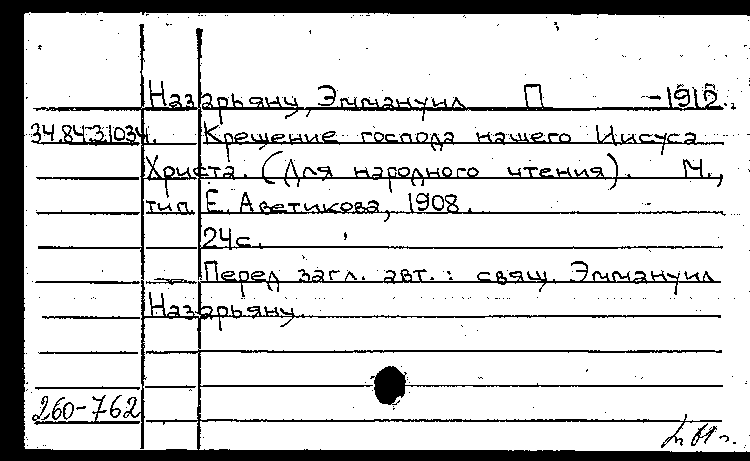 Назарьянц, Эммануил П -1912.
34.84.31034. Крещение господа нашего Иисуса
Христа. (Для народного чтения). М.,
тип. Е. Аветикова, 1908.
24с.
Перед загл. авт.: свящ. Эммануил
Назарьянц.
260-762